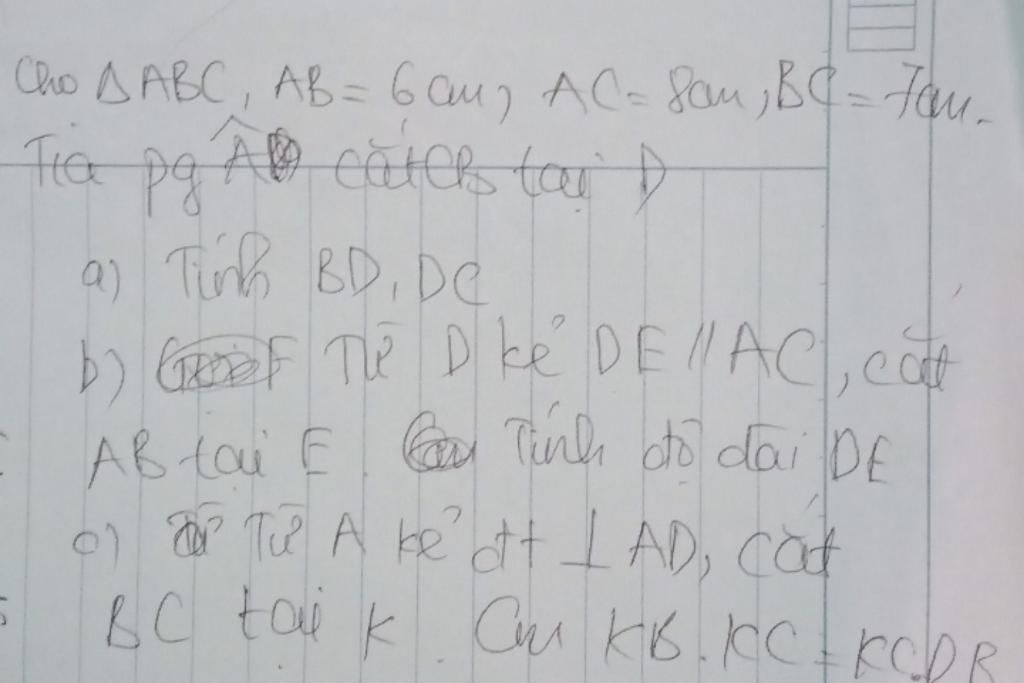 Cho ΔABC, AB = 6cm, AC = 8cm, BC = 7cm.
Tia pg Â cắt CB tại D
a) Tính BD, DC
b) Từ D kẻ DE // AC, cắt
AB tại E. Tính độ dài DE
c) Từ A kẻ đt ⊥ AD, cắt
BC tại K. Cm KB.KC = KC.DB